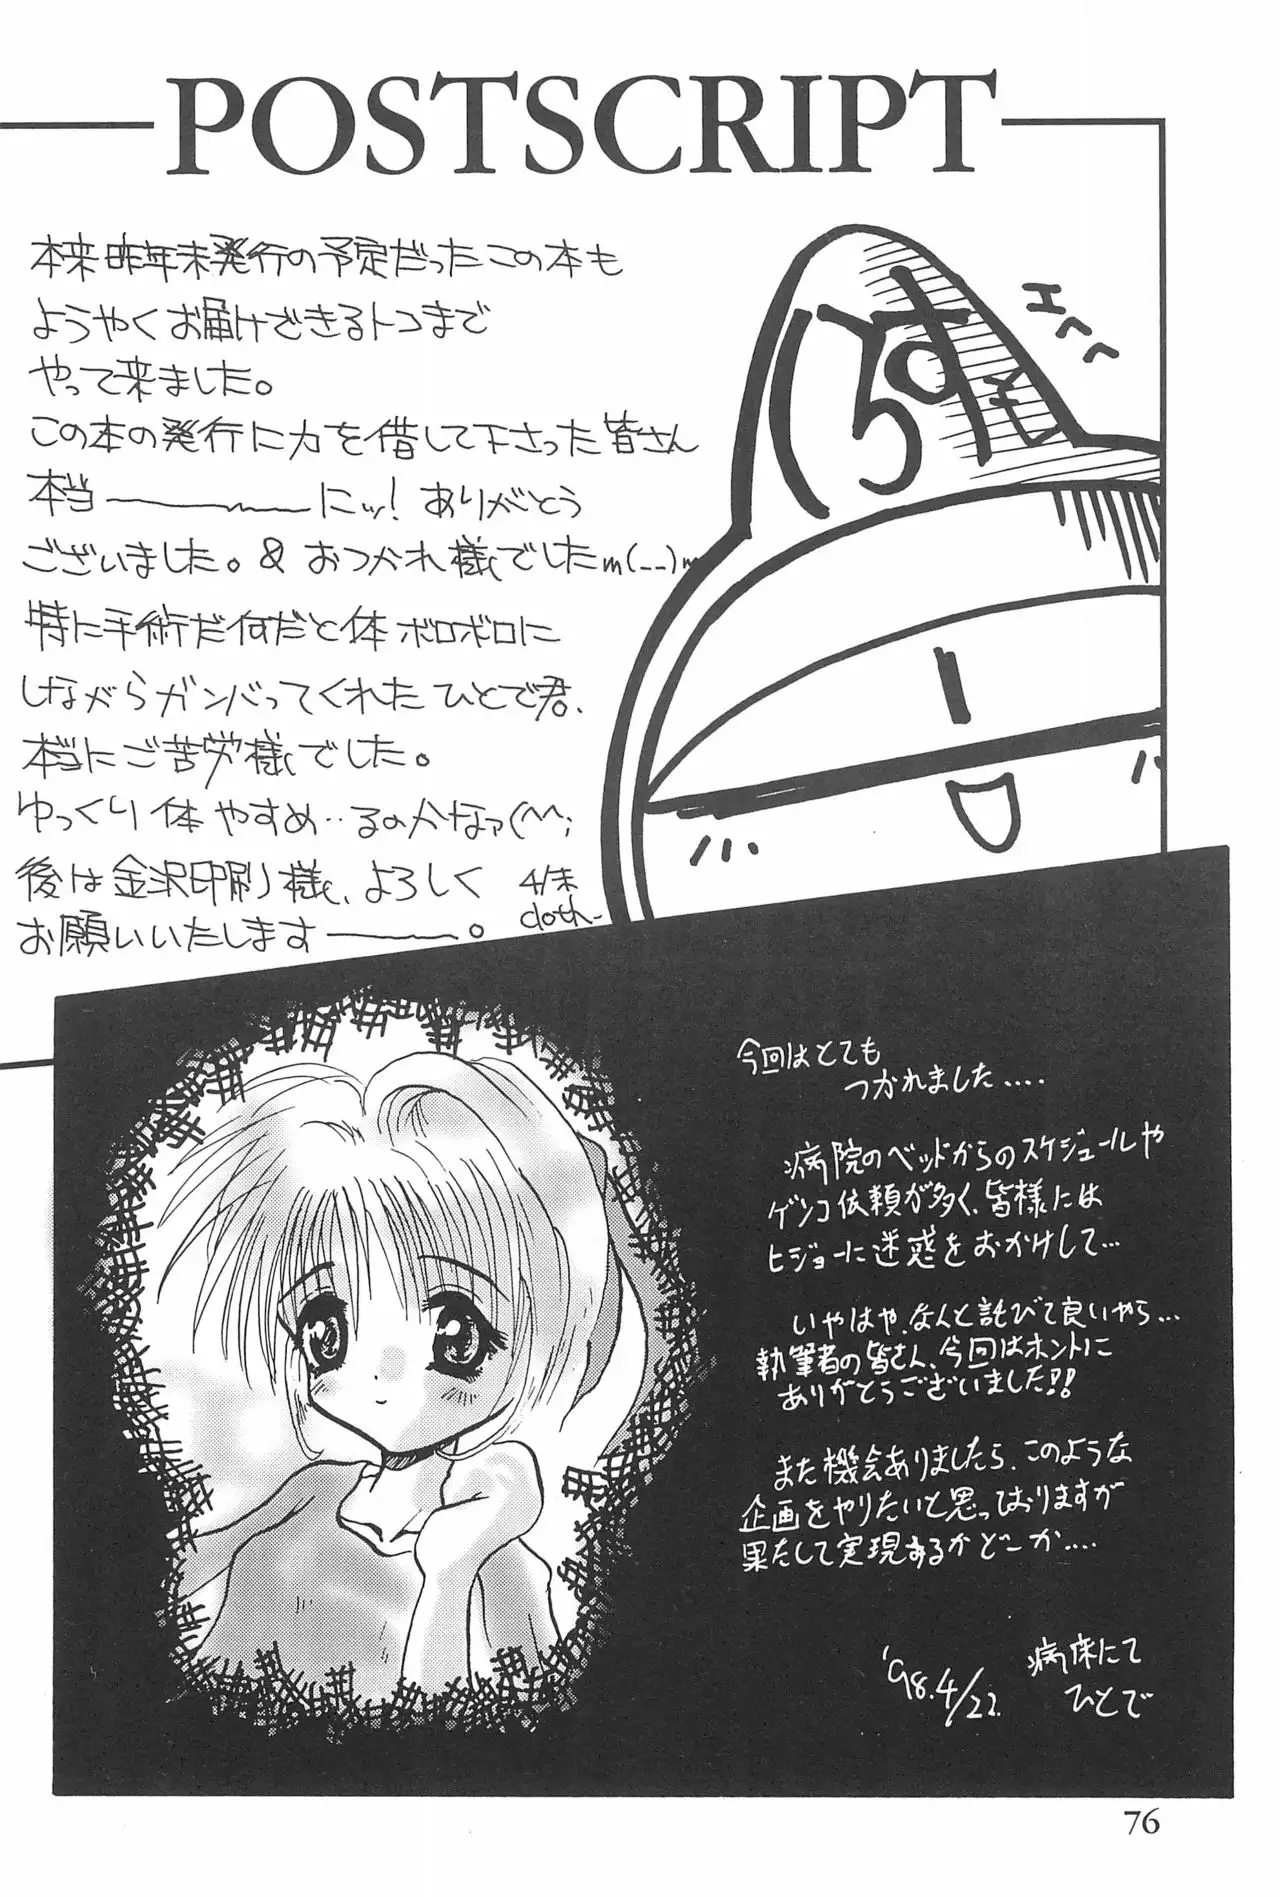 POSTSCRIPT
本来昨年末発行の予定だったこの本も
ようやくお届けできるトコまで
やって来ました。
この本の発行に力を借して下さった皆さん
本当――――にッ! ありがとう
ございました。& おつかれ様でしたm(__)m
特に手術だ何だと体ボロボロに
しながらガンバってくれた ひとで君、
本当にご苦労様でした。
ゆっくり体やすめ‥るのかなァ(^^;
後は金沢印刷様、よろしく
お願いいたします―――。
4/末
cloth-
るすい
エヘヘ
今回はとても
つかれました....
病院のベッドからのスケジュールや
ゲンコ依頼が多く、皆様には
ヒジョーに迷惑をおかけして...
いやはや、なんと詫びて良いやら...
執筆者の皆さん、今回はホントに
ありがとうございました!!
また機会ありましたら、このような
企画をやりたいと思っておりますが
果たして実現するかどーか....
'98.4/22.
病床にて
ひとで
76